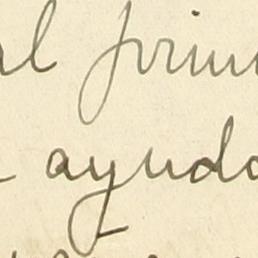 al prim
ayuda